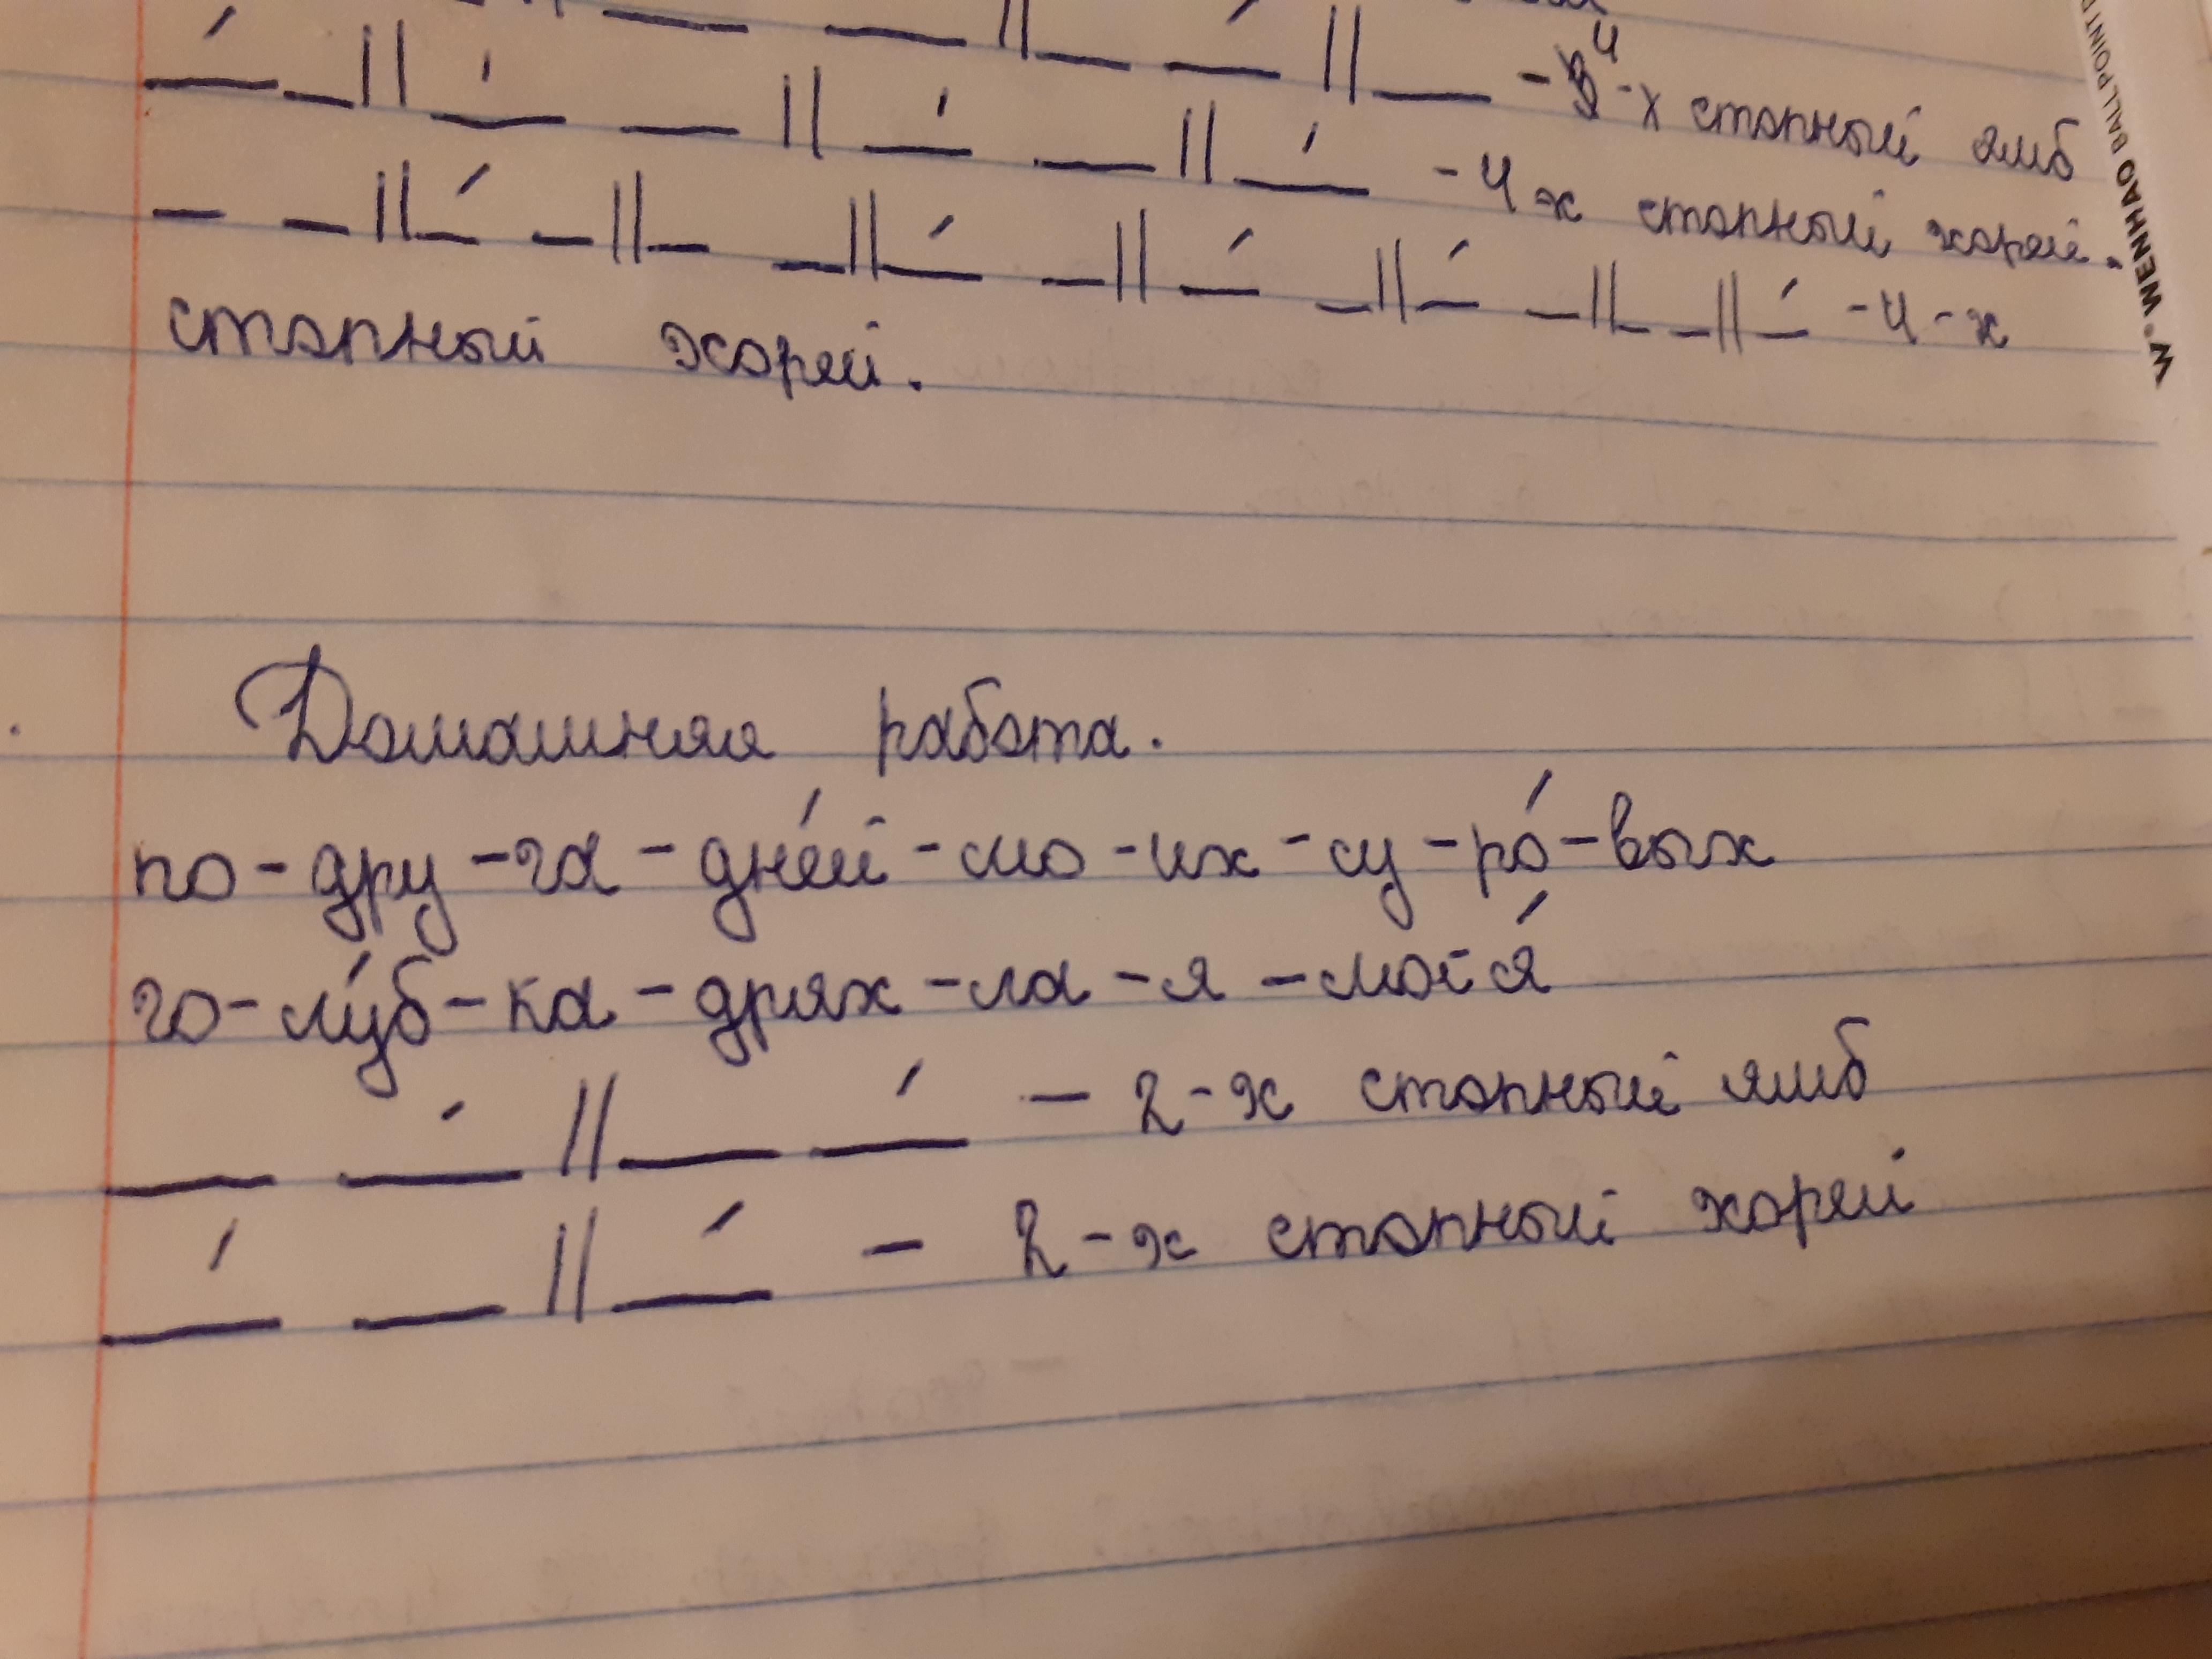 -4-х стопный ямб
-4х стопный хорей.
-4-х
стопный хорей.
W. WENHAO BALLPOINT
Домашняя работа.
по-дру-га-дне́й-мо-их-су-ро́-вых
го-лу́б-ка-дрях-ла-я-мо-я́
— 2-х стопный ямб
— 2-х стопный хорей